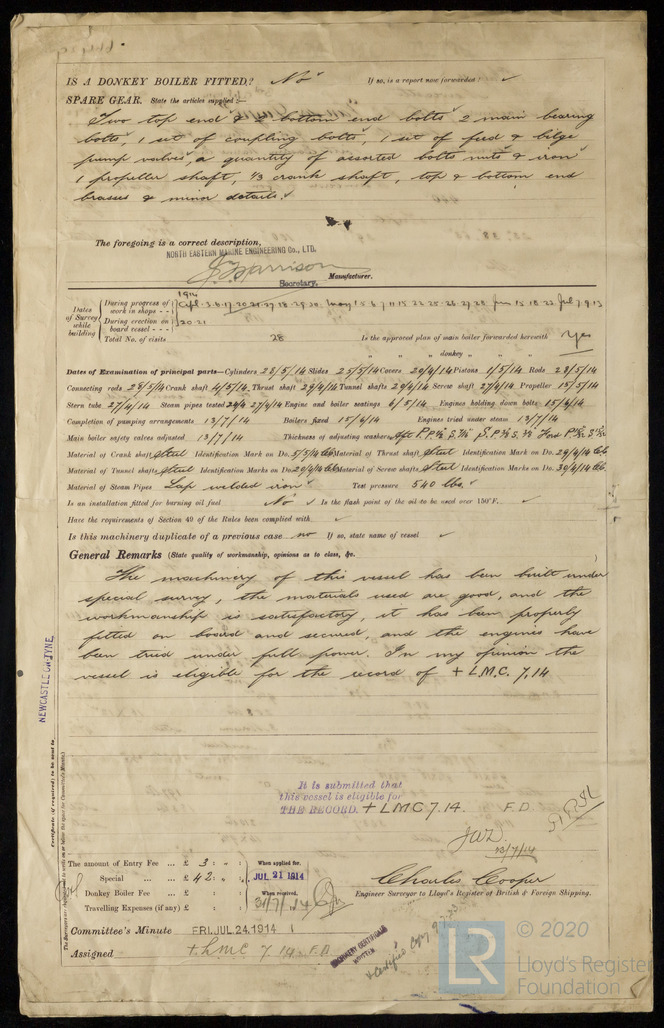 IS A DONKEY BOILER FITTED? No If so, is a report now forwarded?
SPARE GEAR. State the articles supplied:—
Two top end & 2 bottom end bolts 2 main bearing
bolts, 1 set of coupling bolts, 1 set of feed & bilge
pump valves, a quantity of assorted bolts nuts & iron
1 propeller shaft, 1/3 crank shaft, top & bottom end
brasses & minor details.
The foregoing is a correct description,
NORTH EASTERN MARINE ENGINEERING Co., LTD.
Harrison Manufacturer.
Secretary.
1914
Dates of Survey while building
During progress of work in shops - - Apl. 3. 6. 17. 20. 21. 27. 28. 29. 30. May 1 5 6 7 11 15 22 25. 26. 27 28 Jun 15 18 22 Jul 7 9 13
During erection on board vessel - - - 20. 21
Total No. of visits 28 Is the approved plan of main boiler forwarded herewith Yes
" " " donkey " " "
Dates of Examination of principal parts—Cylinders 28/5/14 Slides 25/5/14 Covers 29/4/14 Pistons 1/5/14 Rods 28/5/14
Connecting rods 28/5/14 Crank shaft 4/5/14 Thrust shaft 29/4/14 Tunnel shafts 29/4/14 Screw shaft 27/4/14 Propeller 15/5/14
Stern tube 27/4/14 Steam pipes tested 27/4/14 Engine and boiler seatings 6/5/14 Engines holding down bolts 15/6/14
Completion of pumping arrangements 13/7/14 Boilers fixed 15/6/14 Engines tried under steam 13/7/14
Main boiler safety valves adjusted 13/7/14 Thickness of adjusting washers
Material of Crank shaft Steel Identification Mark on Do. 5/5/14 Material of Thrust shaft Steel Identification Mark on Do. 29/4/14
Material of Tunnel shafts Steel Identification Marks on Do. 29/4/14 Material of Screw shafts Steel Identification Marks on Do. 30/4/14
Material of Steam Pipes Lap welded iron Test pressure 540 lbs.
Is an installation fitted for burning oil fuel No Is the flash point of the oil to be used over 150°F.
Have the requirements of Section 49 of the Rules been complied with
Is this machinery duplicate of a previous case no If so, state name of vessel
General Remarks (State quality of workmanship, opinions as to class, &c.
The machinery of this vessel has been built under
special survey, the materials used are good, and the
workmanship is satisfactory, it has been properly
fitted on board and secured, and the engines have
been tried under full power. In my opinion the
vessel is eligible for the record of + L.M.C. 7.14
NEWCASTLE-ON-TYNE.
Certificate (if required) to be sent to
It is submitted that
this vessel is eligible for
THE RECORD. + LMC 7.14. F.D
The amount of Entry Fee ... £ 3 : " :
Special ... £ 42 : " :
Donkey Boiler Fee ... £
Travelling Expenses (if any) £
When applied for,
JUL 21 1914
When received,
31/7/14
Charles Cooper
Engineer Surveyor to Lloyd's Register of British & Foreign Shipping.
Committee's Minute FRI. JUL 24. 1914
Assigned + LMC 7.14. F.D
MACHINERY CERTIFICATE
WRITTEN
© 2020
LR
Lloyd's Register
Foundation